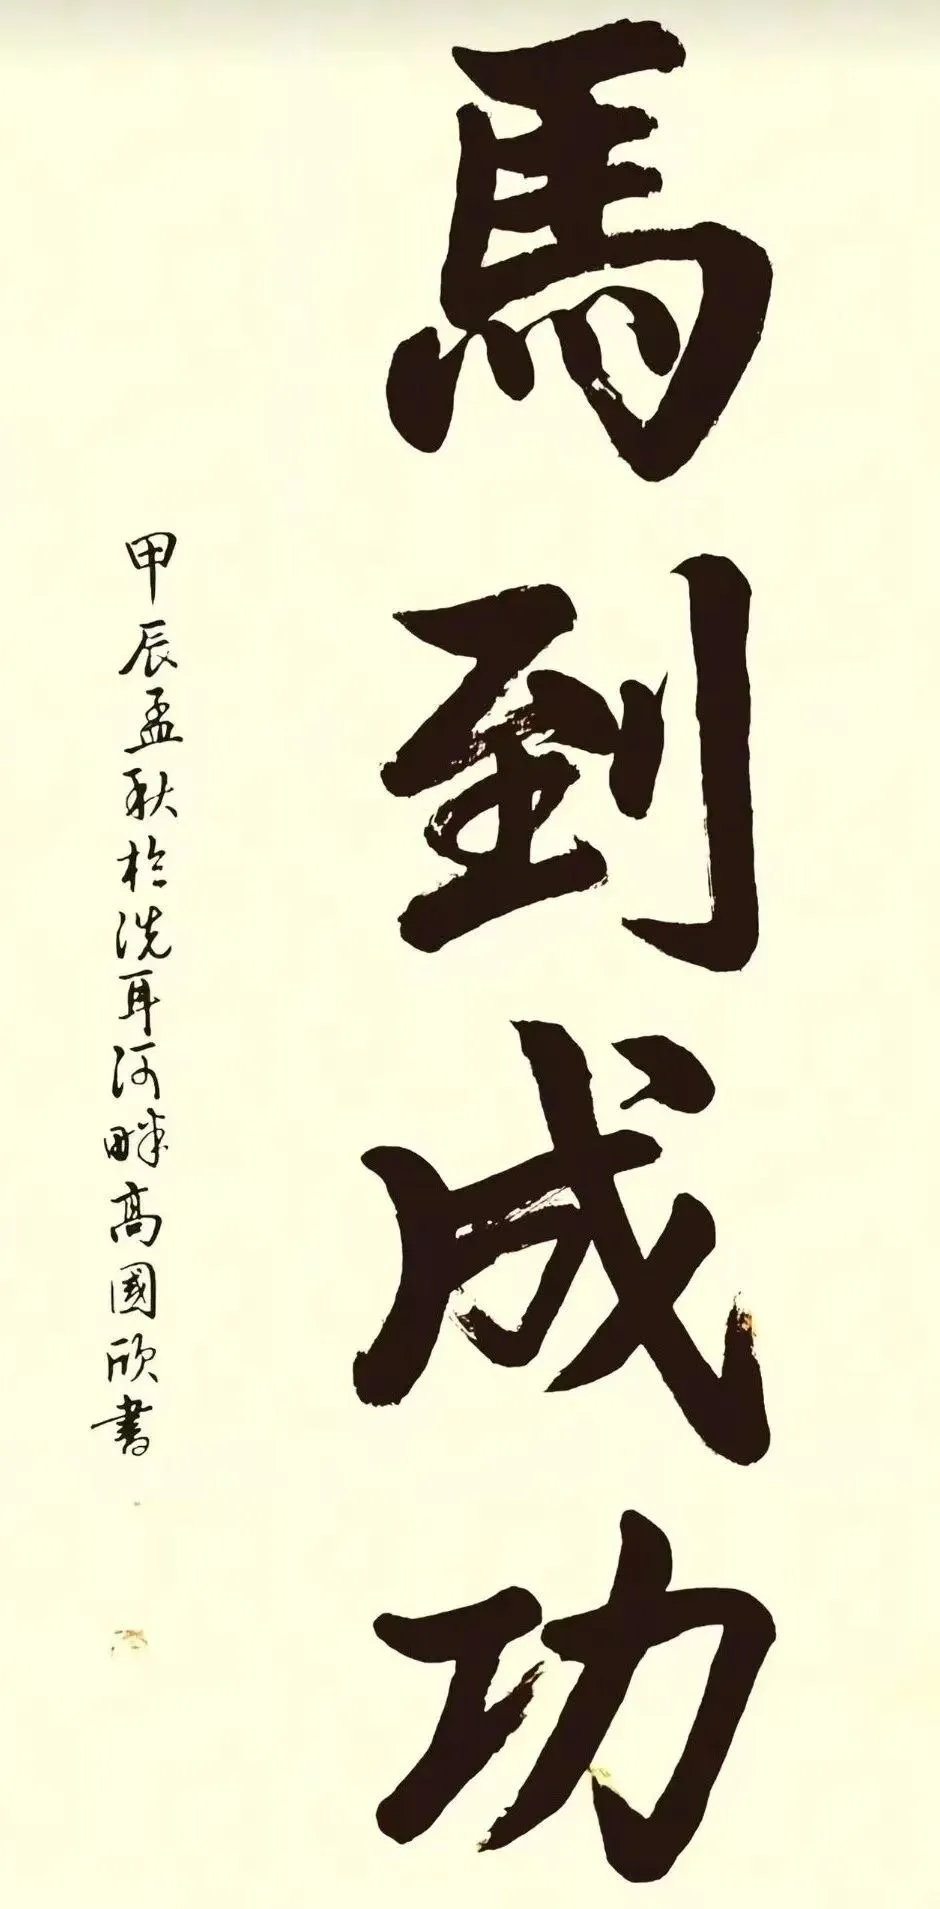 馬到成功
甲辰孟秋於洗耳河畔高國欣書